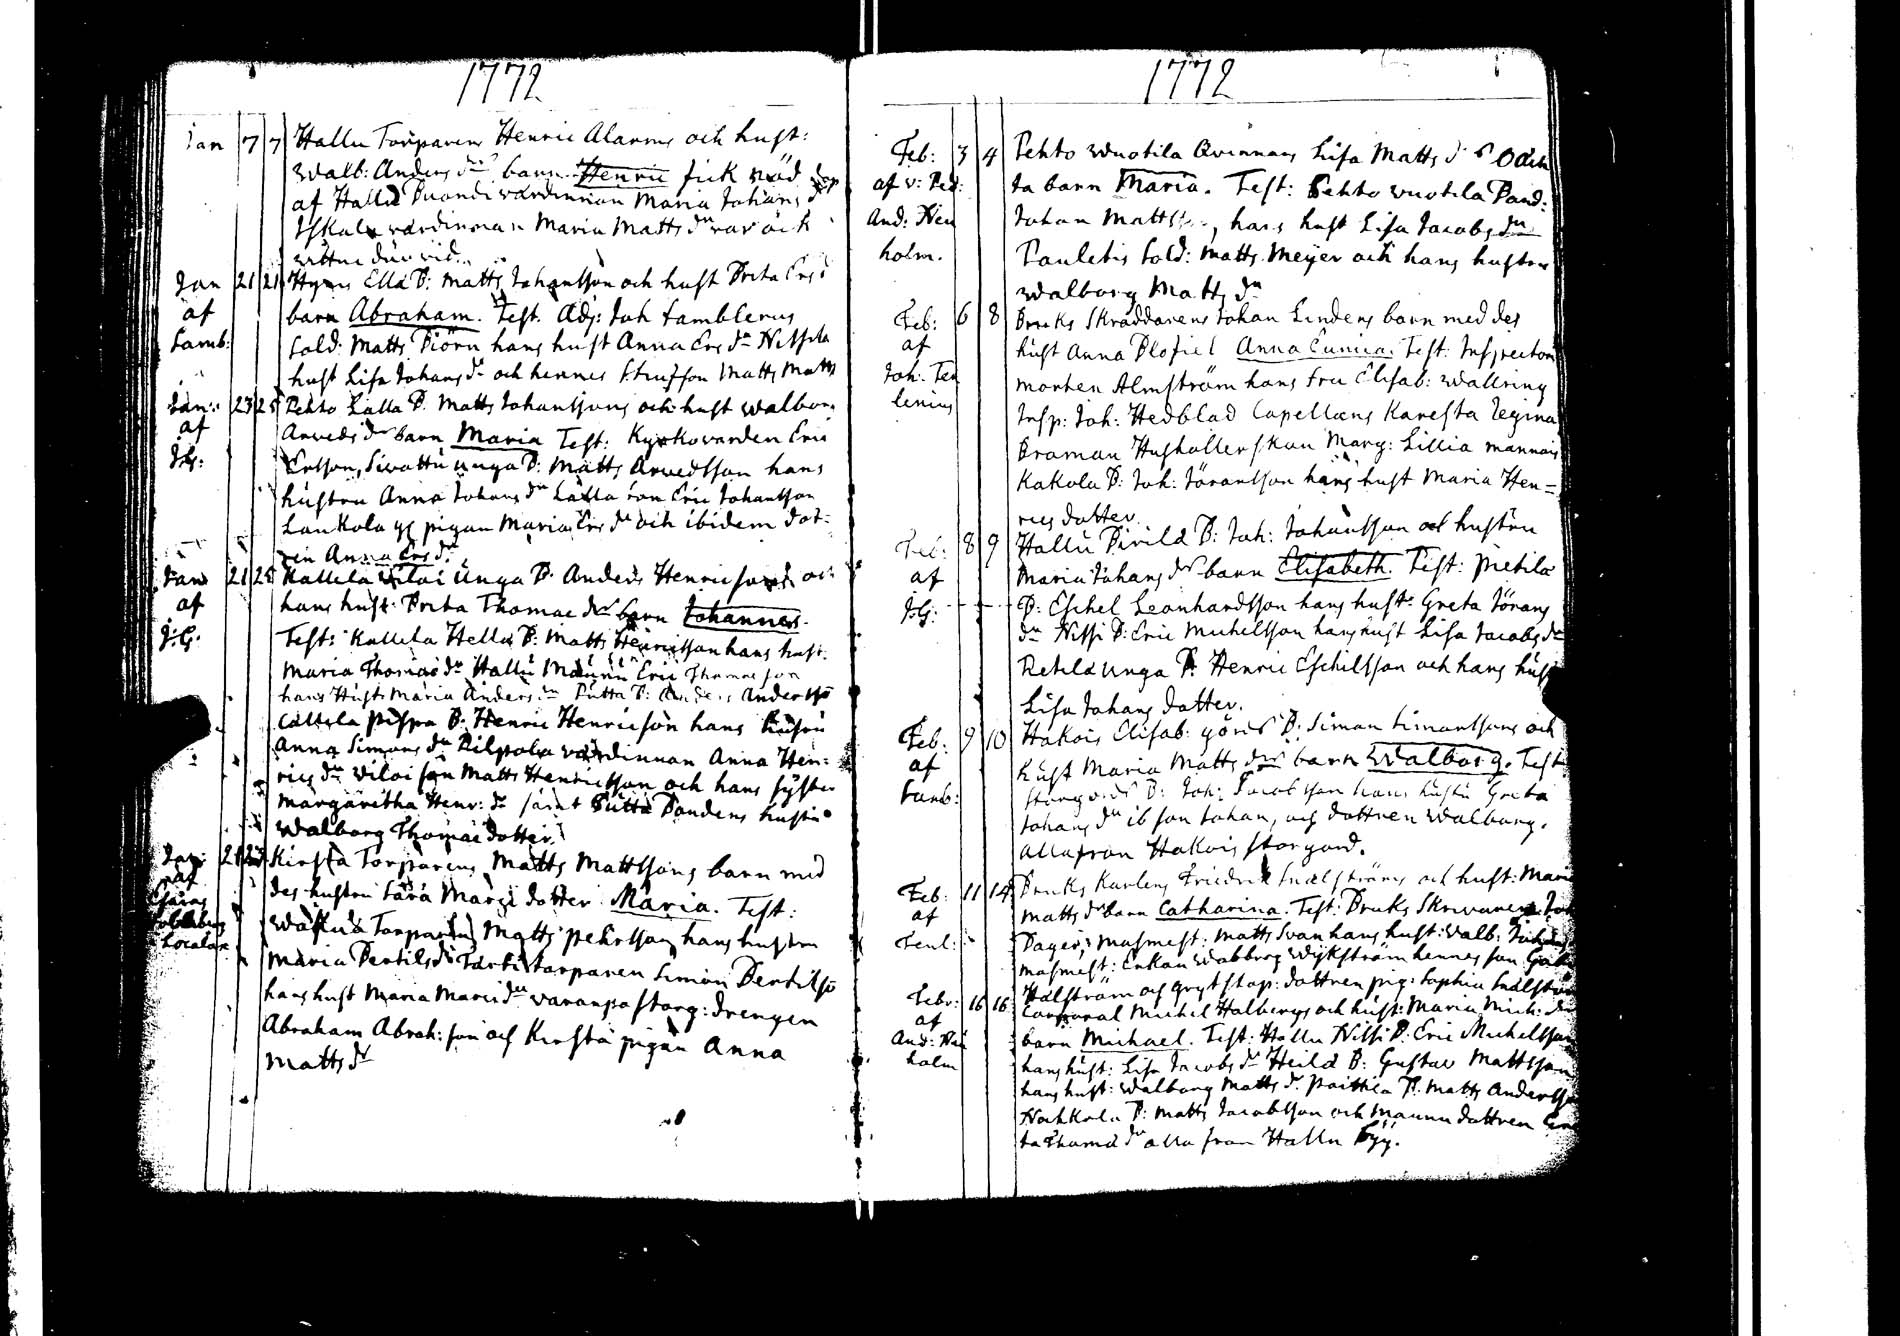 1772
Jan 7 7 Hallu Torparens Henric Alarens och hust:
Walb: Anders dr barn Henric fick nöd dop
af Hallu Puondi värdinnan Maria Johans dr
Iskala värdinnan Maria Matts dr var ock
vittne där vid.
Jan 21 21 Ella B: Matts Johansson och hust Brita Ers
af barn Abraham. Test. Adj: Joh Tamblerus
Lamb: Sold: Matts Biörn hans hust Anna Ers dr
hust Lisa Johans dr och hennes Matts Matts
Jan: 23 25 Pehto Lalla B. Matts Johanssons och hust Walborg
af Arveds dr barn Maria Test: Kyrkovärden Eric
J:G: Ersson, Sivattu unga B: Matts Arvedsson hans
hustru Anna Johans dr Lalla son Eric Johansson
Laukola pigan Maria Ers dr och ibidem dot-
ren Anna Ers dr
Jan 21 25 Kallela Viloi unga B. Anders Henricsons och
af hans hust: Brita Thomae dr barn Johannes.
J:G: Test: Kallela Hellu B: Matts Henricsson hans hust.
Maria Thomae dr Hallu Maunu Eric Thomasson
hans Hust Maria Anders dr Putta B: Anders Andersso
Callela Pispa B: Henric Henricson hans hustru
Anna Simons dr Pilpola värdinnan Anna Hen-
rics dr Viloi son Matts Henricsson och hans syster
Margaretha Henr: dr samt Putta Bondens hustru
Walborg Thomae dotter.
Jan: Kirsta Torparens Matts Mattssons barn med
af des hustru Sara Marci dotter Maria. Test:
Torparen Matts Pehrsson hans hustru
Maria Bertils dr torparen Simon Bertilss
hans hust Maria Marci dr drengen
Abraham Abrah: son och Kirsta pigan Anna
Matts dr
1772
Feb: 3 4 Pehto Wuotila Qvinnans Lisa Matts drs Oäch
af v: Past: ta barn Maria. Test: Pehto Wuotila Bond:
And: Neu Johan Mattss, hans hust Lisa Jacobs dr
holm. Pauletis Sold: Matts Meyer och hans hustru
Walborg Matts dr
Feb: 6 8 Bruks Skräddarens Johan Lindens barn med des
af hust Anna Anna Eunica. Test: Inspectorn
Joh: Ten Morten Almström hans fru Elisab: Wallring
lenius Insp: Joh: Hedblad Capellans Käresta Regina
Braman Hushållerskan Marg: Lillia
Kakola B: Joh: Jöransson hans hust Maria Hen-
rics dotter.
Feb: 8 9 Hallu Pirilä B: Joh: Johansson och hustru
af Maria Johans drs barn Elisabeth. Test: Pietilä
J:G: B: Eschel Leonhardsson hans hust: Greta Jörans
dr Nissi B: Eric Michelsson hans hust Lisa Jacobs dr
unga B: Henric Eschilsson och hans hust
Lisa Johans dotter.
Feb: 9 10 Hakois Elisab: görds B: Simon Simonssons och
af hust Maria Matts drs barn Walborg. Test
Lamb: storgårds B: Joh: Jacobsson hans hustru Greta
Johans dr ib son Johan, och dottren Walborg.
alla från Hakois storgård.
Feb: 11 14 Bruks Karlens Friedric Snälströms och hust: Mari
af Matts drs barn Catharina. Test: Bruks Skrivaren Joh
Tenl: Masmest: Matts Svan hans hust: Walb: Johans
masmest: Enkan Wabborg Wijkström hennes son Gab
Hälström och dottren pig: Sophia Snälström
Febr: 16 16 Corporal Michel Halbergs och hust: Maria Mich: dr
af barn Michael. Test: Hallu Nissi B: Eric Michelsson
And: Neu hans hust: Lisa Jacobs dr Heilä B: Gustav Mattsson
holm hans hust: Walborg Matts dr. Poittila B: Matts Andersson
B: Matts Jacobsson och Maunu dottren Gre
ta Thomæ dr alla från Hallu by.